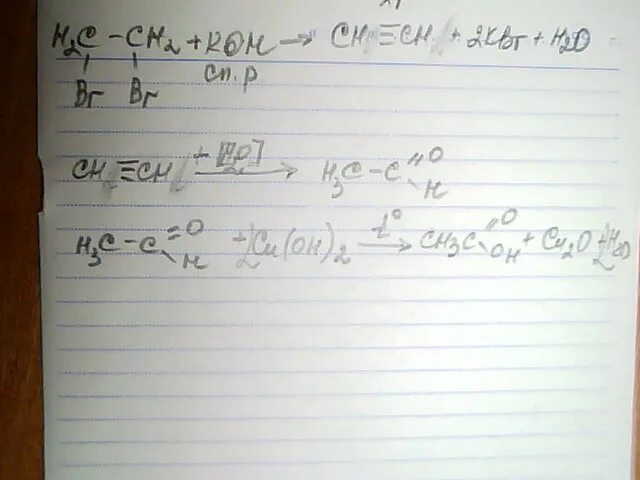 H₂C – CH₂ + KOH → CH ≡ CH + 2KBr + H₂O
Br Br сп.р
CH ≡ CH + H₂O → H₃C – C =O H
H₃C – C =O H + 2Cu(OH)₂ t° → CH₃C =O OH + Cu₂O + 2H₂O